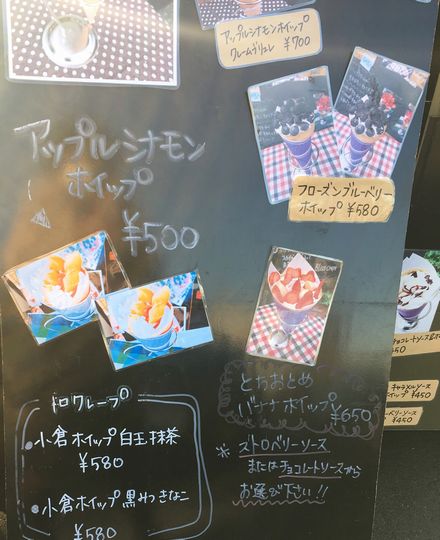 アップルシナモンホイップ
クレームブリュレ ¥700
アップルシナモン
ホイップ
¥500
フローズンブルーベリー
ホイップ ¥580
とちおとめ
バナナホイップ ¥650
※ ストロベリーソース
またはチョコレートソースから
お選び下さい!!
和クレープ
・小倉ホイップ白玉抹茶
¥580
・小倉ホイップ黒みつきなこ
¥580
チョコレートソース
450
キャラメルソース
ホイップ ¥450
ベリーソース
¥450